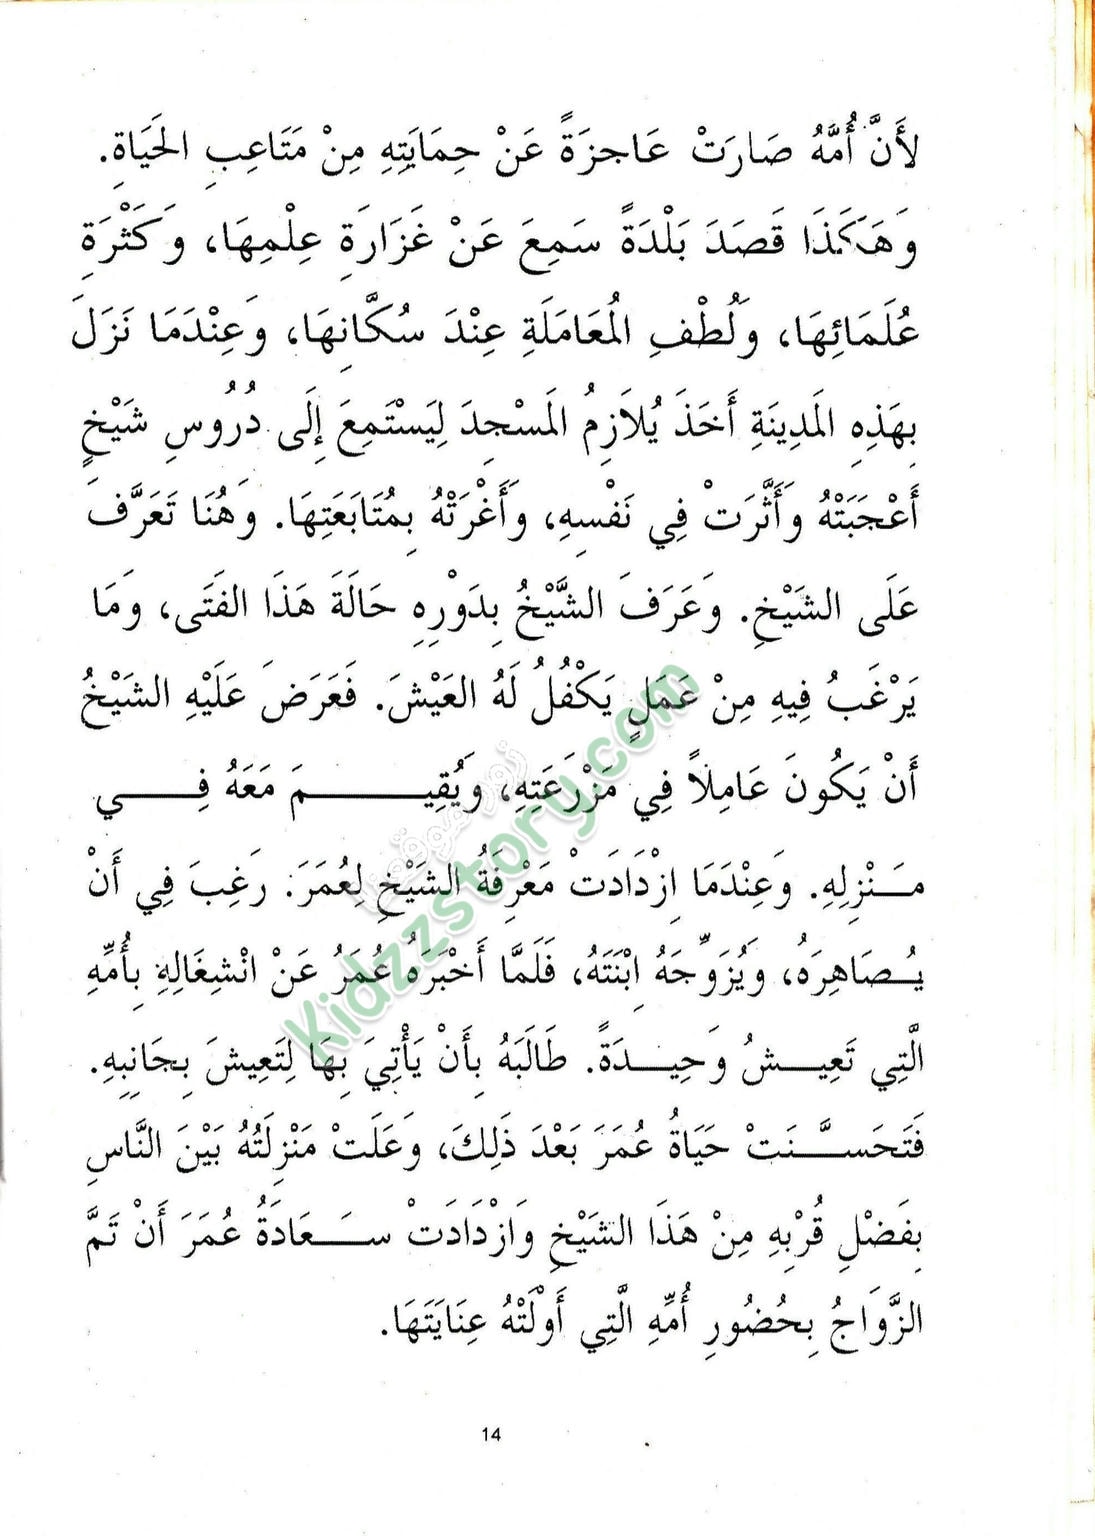 لأَنَّ أُمَّهُ صَارَتْ عَاجِزَةً عَنْ حِمَايَتِهِ مِنْ مَتَاعِبِ الحَيَاةِ.
وَهَكَذَا قَصَدَ بَلْدَةً سَمِعَ عَنْ غَزَارَةِ عِلْمِهَا، وَكَثْرَةِ
عُلَمَائِهَا، وَلُطْفِ المُعَامَلَةِ عِنْدَ سُكَّانِهَا، وَعِنْدَمَا نَزَلَ
بِهَذِهِ المَدِينَةِ أَخَذَ يُلاَزِمُ المَسْجِدَ لِيَسْتَمِعَ إِلَى دُرُوسِ شَيْخٍ
أَعْجَبَتْهُ وَأَثَّرَتْ فِي نَفْسِهِ، وَأَغْرَتْهُ بِمُتَابَعَتِهَا. وَهُنَا تَعَرَّفَ
عَلَى الشَيْخِ. وَعَرَفَ الشَّيْخُ بِدَوْرِهِ حَالَةَ هَذَا الفَتَى، وَمَا
يَرْغَبُ فِيهِ مِنْ عَمَلٍ يَكْفُلُ لَهُ العَيْشَ. فَعَرَضَ عَلَيْهِ الشَيْخُ
أَنْ يَكُونَ عَامِلاً فِي مَزْرَعَتِهِ، وَيُقِيـــــمَ مَعَهُ فِـــــي
مَـنْزِلِهِ. وَعِنْدَمَا اِزْدَادَتْ مَعْرِفَةُ الشَيْخِ لِعُمَرَ. رَغِبَ فِي أَنْ
يُـصَاهِرَهُ، وَيُزَوِّجَهُ اِبْنَتَهُ، فَلَمَّا أَخْبَرَهُ عُمَرُ عَنْ انْشِغَالِهِ بِأُمِّهِ
الَّتِي تَعِيـــشُ وَحِيـــدَةً. طَالَبَهُ بِأَنْ يَأْتِيَ بِهَا لِتَعِيشَ بِجَانِبِهِ.
فَتَحَسَّـــنَتْ حَيَاةُ عُمَرَ بَعْدَ ذَلِكَ، وَعَلَتْ مَنْزِلَتُهُ بَيْنَ النَّاسِ
بِفَضْلِ قُرْبِهِ مِنْ هَذَا الشَيْخِ وَازْدَادَتْ سَـــعَادَةُ عُمَرَ أَنْ تَمَّ
الزَّوَاجُ بِحُضُورِ أُمِّهِ الَّتِي أَوْلَتْهُ عِنَايَتَهَا.
زوروا موقعنا
Kidzzstory.com
14